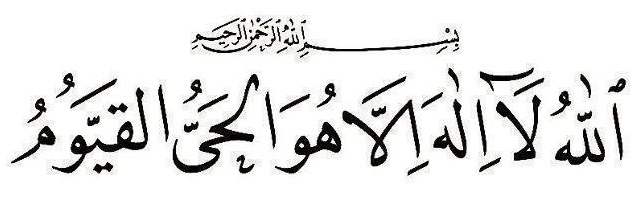 بِسْمِ اللهِ الرَّحْمٰنِ الرَّحِيمِ
اَللّٰهُ لَآ اِلٰهَ اِلَّا هُوَ الْحَىُّ الْقَيُّومُ